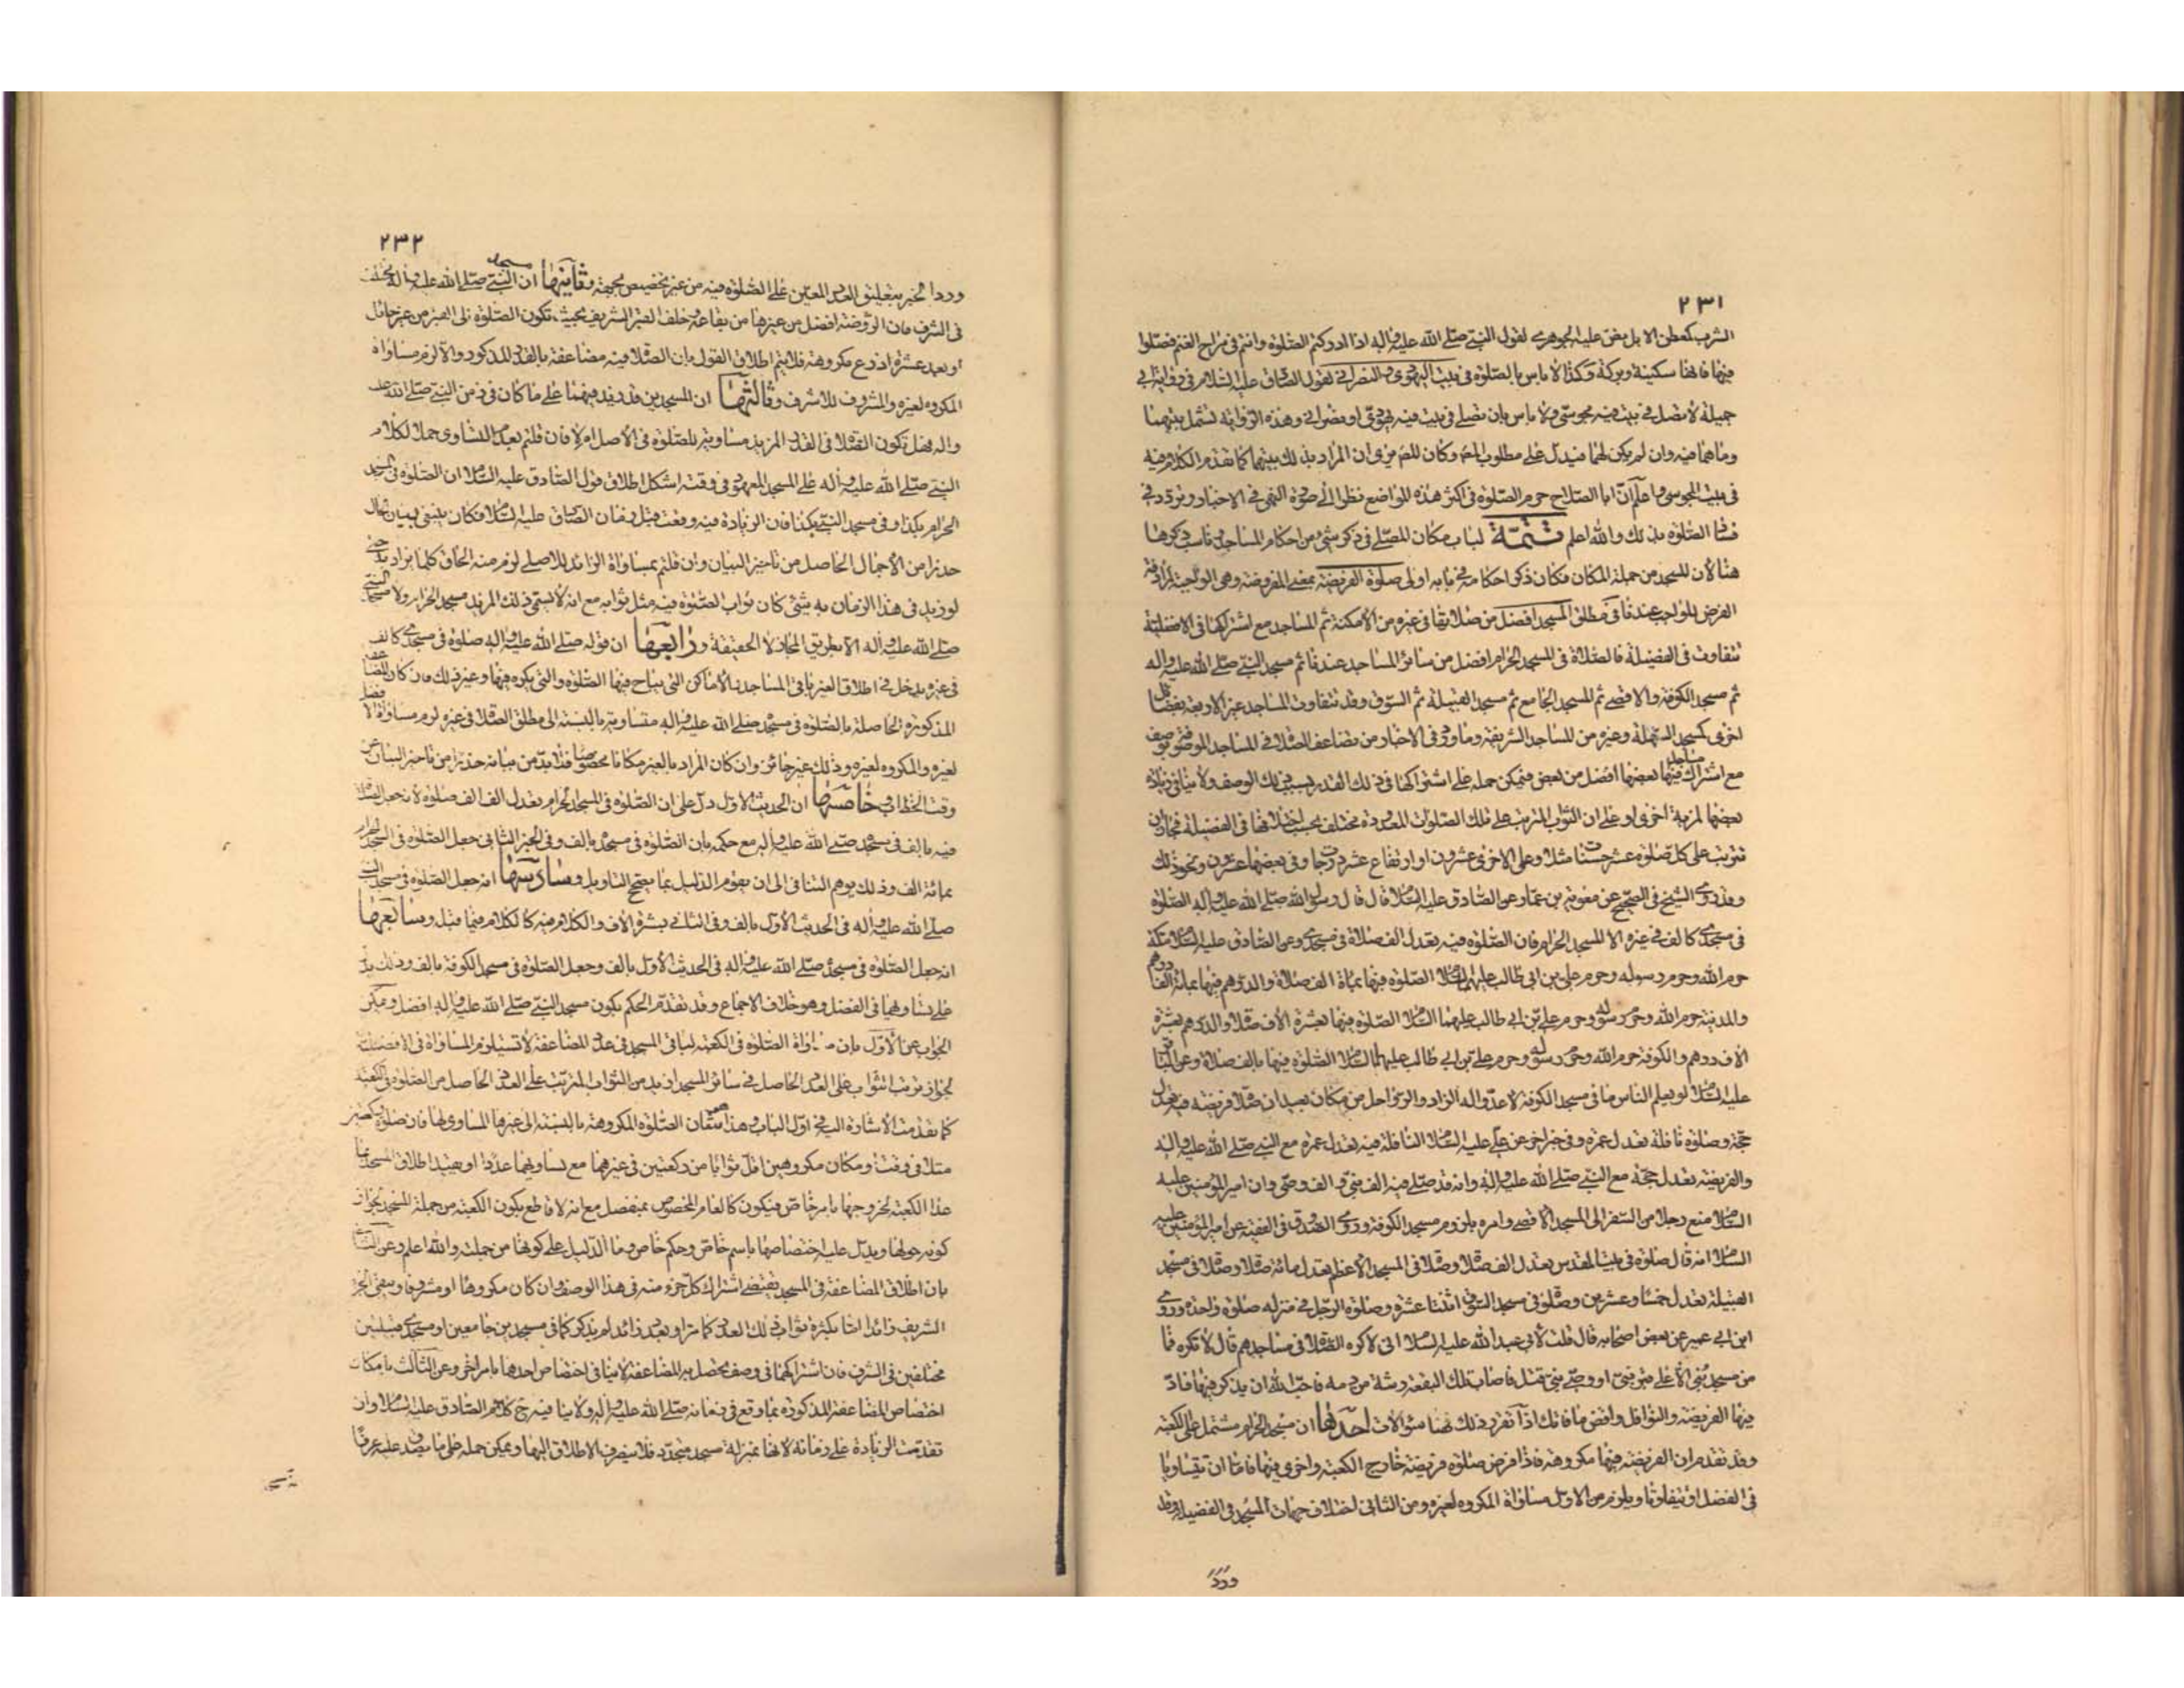 ٢٣١
الشرب كمعطن الابل نص عليه الجوهري لقول النبي صلى الله عليه واله اذا ادركتم الصلوة وانتم في مراح الغنم فصلوا
فيها فانها سكينة وبركة وكذا لا باس بالصلوة في بيت اليهودي والنصراني لقول الصادق عليه السلام في رواية ابي
جميلة لا تصل في بيت فيه مجوسي ولا باس بان تصلي في بيت فيه يهودي او نصراني وهذه الرواية تشمل بيتهما
وما هما فيه وان لم يكن لهما فيدل على مطلوب المصر وكان للمصر من ان المراد بذلك بيتهما كما تقدم الكلام فيه
في بيت المجوسي واعلم ان ابا الصلاح حرم الصلوة في اكثر هذه المواضع نظرا الى صورة النهي في الاخبار وتردد في
فساد الصلوة بذلك والله اعلم تتمة لباب مكان المصلي في ذكر شيء من احكام المساجد وناسب ذكرها
هنا لان المسجد من جملة المكان فكان ذكر احكامه في بابه اولى صلوة الفريضة بمعنى المفروضة وهي الواجبة لمرادفة
الفرض للواجب عندنا في مطلق المسجد افضل من صلاتها في غيره من الامكنة ثم المساجد مع اشتراكها في الافضلية
تتفاوت في الفضيلة فالصلاة في المسجد الحرام افضل من سائر المساجد عندنا ثم مسجد النبي صلى الله عليه واله
ثم مسجد الكوفة والاقصى ثم المسجد الجامع ثم مسجد القبيلة ثم السوق وقد تتفاوت المساجد غير الاربعة بفضائل
اخرى كمسجد السهلة وغيره من المساجد الشريفة وما ورد في الاخبار من تضاعف الصلاة في المساجد الموصوفة بوصف
مع اشتراك مساجد فيها بعضها افضل من بعض فيمكن حمله على اشتراكها في ذلك القدر بسبب ذلك الوصف ولا ينافي زيادة
بعضها لمزية اخرى او على ان الثواب المترتب على تلك الصلوات المعدودة مختلف بحسب اختلافها في الفضيلة فجاز ان
تترتب على كل صلوة عشر حسنات مثلا وعلى الاخرى عشرون او ارتفاع عشر درجات وفي بعضها عشرون ونحو ذلك
وقد روى الشيخ في الصحيح عن معوية بن عمار عن الصادق عليه السلام قال قال رسول الله صلى الله عليه واله الصلوة
في مسجدي كالف في غيره الا المسجد الحرام فان الصلوة فيه تعدل الف صلاة في مسجدي وعن الصادق عليه السلام مكة
حرم الله وحرم رسوله وحرم علي بن ابي طالب عليهما السلام الصلوة فيها بماة الف صلاة والدرهم فيها بمائة الف درهم
والمدينة حرم الله وحرم رسوله وحرم علي بن ابي طالب عليهما السلام الصلوة فيها بعشرة الاف صلاة والدرهم بعشرة
الاف درهم والكوفة حرم الله وحرم رسوله وحرم علي بن ابي طالب عليهما السلام الصلوة فيها بالف صلاة وعن الباقر
عليه السلام لو يعلم الناس ما في مسجد الكوفة لاعدوا له الزاد والرواحل من مكان بعيد ان صلاة فريضة فيه تعدل
حجة وصلوة نافلة تعدل عمرة وفي خبر اخر عن علي عليه السلام النافلة فيه تعدل عمرة مع النبي صلى الله عليه واله
والفريضة تعدل حجة مع النبي صلى الله عليه واله وانه قد صلى فيه الف نبي والف وصي وان امير المؤمنين عليه
السلام منع رجلا من السفر الى المسجد الاقصى وامره بلزوم مسجد الكوفة وروى الصدوق في الفقيه عن امير المؤمنين عليه
السلام انه قال صلوة في بيت المقدس تعدل الف صلاة وصلاة في المسجد الاعظم تعدل مائة صلاة وصلاة في مسجد
القبيلة تعدل خمسا وعشرين وصلوة في مسجد السوق اثنتا عشرة وصلوة الرجل في منزله صلوة واحدة وروى
ابن ابي عمير عن بعض اصحابه قال قلت لابي عبد الله عليه السلام اني لاكره الصلاة في مساجدهم قال لا تكره فما
من مسجد بني الا على قبر نبي او وصي نبي قتل فاصاب تلك البقعة رشة من دمه فاحب الله ان يذكر فيها فاد
فيها الفريضة والنوافل واقض ما فاتك اذا تقرر ذلك فهنا سؤالات احدها ان مسجد الحرام مشتمل على الكعبة
وقد تقدم ان الفريضة فيها مكروهة فاذا فرض صلوة فريضة خارج الكعبة واخرى فيها فاما ان تتساويا
في الفضل او تتفاوتا ويلزم من الاول مساواة المكروه لغيره ومن الثاني اختلاف جهات المسجد في الفضيلة وقد
ورد
٢٣٢
ورد الخبر بتعليق العدد المعين على الصلوة فيه من غير تخصيص بجهة وثانيها ان مسجد النبي صلى الله عليه واله مختلف
في الشرف فان الروضة افضل من غيرها من بقاعه وخلف القبر الشريف بحيث تكون الصلوة الى القبر من غير حائل
او بعد عشرة اذرع مكروهة فلا يتم اطلاق القول بان الصلاة فيه مضاعفة بالقدر المذكور والا لزم مساواة
المكروه لغيره والمشروف للاشرف وثالثها ان المسجدين قد زيد فيهما على ما كان في زمن النبي صلى الله عليه
واله فهل تكون الصلاة في القدر المزيد مساوية للصلوة في الاصل ام لا فان قلتم بعدم التساوي حملا لكلام
النبي صلى الله عليه واله على المسجد المعهود في وقته اشكل اطلاق قول الصادق عليه السلام ان الصلوة في المسجد
الحرام بكذا وفي مسجد النبي بكذا فان الزيادة فيه وقعت قبل زمان الصادق عليه السلام فكان ينبغي بيان الحال
حذرا من الاجمال الحاصل من تاخير البيان وان قلتم بمساواة الزائد للاصلي لزم منه الحاق كلما يزاد به حتى
لو زيد في هذا الزمان به شيء كان ثواب الصلوة فيه مثل ثوابه مع انه لا يسمى ذلك المزيد مسجد الحرام ولا مسجد النبي
صلى الله عليه واله الا بطريق المجاز لا الحقيقة ورابعها ان قوله صلى الله عليه واله صلوة في مسجدي كالف
في غيره يدخل في اطلاق الغير باقي المساجد والاماكن التي يباح فيها الصلوة والتي يكره فيها وغير ذلك فان كان المضاعفة
المذكورة الحاصلة بالصلوة في مسجده صلى الله عليه واله متساوية بالنسبة الى مطلق الصلاة في غيره لزم مساواة الافضل
لغيره والمكروه لغيره وذلك غير جائز وان كان المراد بالغير مكانا مخصوصا فلا بد من بيانه حذرا من تاخير البيان عن
وقت الخطاب وخامسها ان الحديث الاول دل على ان الصلوة في المسجد الحرام تعدل الف الف صلوة لانه جعل الصلاة
فيه بالف في مسجده صلى الله عليه واله مع حكمه بان الصلوة في مسجده بالف وفي الخبر الثاني جعل الصلوة في المسجد الحرام
بمائة الف وذلك يوهم التنافي الى ان يقوم الدليل بما يصحح التاويل وسادسها انه جعل الصلوة في مسجد النبي
صلى الله عليه واله في الحديث الاول بالف وفي الثاني بعشرة الاف والكلام فيه كالكلام فيما قبل وسابعها
انه جعل الصلوة في مسجده صلى الله عليه واله في الحديث الاول بالف وجعل الصلوة في مسجد الكوفة بالف وذلك يدل
على تساويهما في الفضل وهو خلاف الاجماع وقد تقدم الحكم بكون مسجد النبي صلى الله عليه واله افضل ويمكن
الجواب عن الاول بان مساواة الصلوة في الكعبة لباقي المسجد في عدد المضاعفة لا تستلزم المساواة في الافضلية
لجواز ترتب الثواب على العدد الحاصل في سائر المسجد ازيد من الثواب المترتب على العدد الحاصل من الصلوة في الكعبة
كما تقدمت الاشارة اليه في اول الباب وهذا متفق فان الصلوة المكروهة بالنسبة الى غيرها المساوي لها فان صلوة ركعتين
مثلا في وقت ومكان مكروهين اقل ثوابا من ركعتين في غيرهما مع تساويهما عددا او بتقييد اطلاق المسجد بما
عدا الكعبة لخروجها بامر خاص فيكون كالعام المخصوص بمنفصل مع انه لا قاطع بكون الكعبة من جملة المسجد لجواز
كونه حولها ويدل عليه اختصاصها باسم خاص وحكم خاص وما الدليل على كونها من جملته والله اعلم وعن الثاني
بان اطلاق المضاعفة في المسجد يقتضي اشتراك كل جزء منه في هذا الوصف وان كان مكروها او مشروفا ويبقى الجزء
الشريف زائدا اما بكثرة ثواب ذلك العدد كما مر او بعدد زائد لم يذكر كما في مسجدين جامعين او مسجدي قبيلتين
مختلفين في الشرف فان اشتراكهما في وصف يحصل به المضاعفة لا ينافي اختصاص احدها بامر اخر وعن الثالث بامكان
اختصاص المضاعفة المذكورة بما وقع في زمانه صلى الله عليه واله ولا ينافيه ح كلام الصادق عليه السلام وان
تقدمت الزيادة على زمانه لانها بمنزلة مسجد متجدد فلا ينصرف الاطلاق اليها ويمكن حمله على ما يصدق عليه عرفا